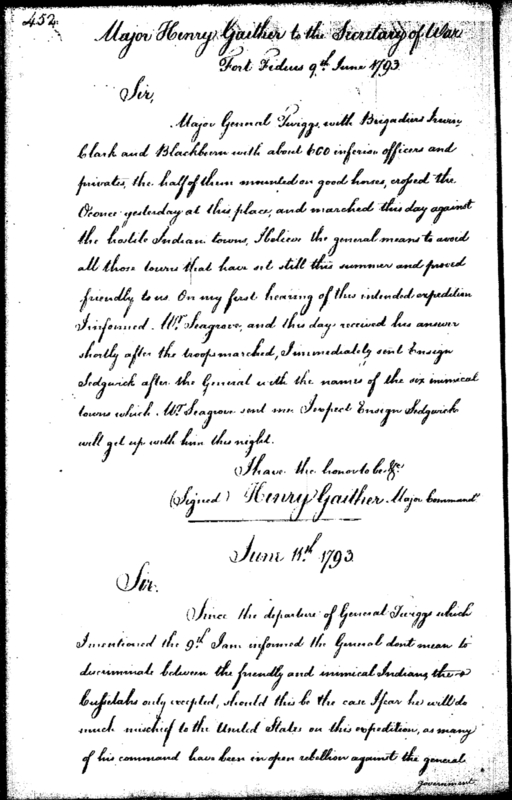 452
Major Henry Gaither to the Secretary of War
Fort Fidius 9th June 1793.
Sir,
Major General Twiggs, with Brigadiers Irwin,
Clark and Blackburn with about 600 inferior officers and
privates, the half of them mounted on good horses, crossed the
Oconee yesterday at this place, and marched this day against
the hostile Indian towns, I believe the general means to avoid
all those towns that have set still this summer and proved
friendly to us. On my first hearing of this intended expedition
I informed Mr Seagrove, and this day received his answer
shortly after the troops marched, I immediately sent Ensign
Sedgwick after the General with the names of the six inimical
towns which Mr Seagrove sent me. I expect Ensign Sedgwick
will get up with him this night.
I have the honor to be &c.
(Signed) Henry Gaither Major Command
June 11th 1793
Sir.
Since the departure of General Twiggs which
I mentioned the 9th I am informed the General dont mean to
discriminate between the friendly and inimical Indians, the
Cussetahs only excepted, should this be the case I fear he will do
much mischief to the United States on this expedition, as many
of his command have been in open rebellion against the general
government